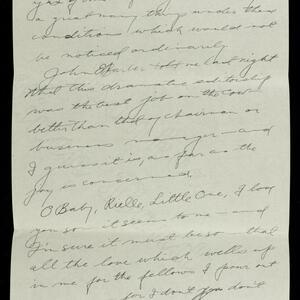 a great many things under these
conditions which would not
be noticed ordinarily.
John told me last night
that this dramatic editorship
was the best job on the
better than that of chairman or
business manager — and
I guess it is, as far as the
joy is concerned.
O Baby, Rielle, Little One, I love
you so it seems to me — and
I'm sure it must be so — that
all the love which wells up
in me for the fellows I pour out
for I don't you don't